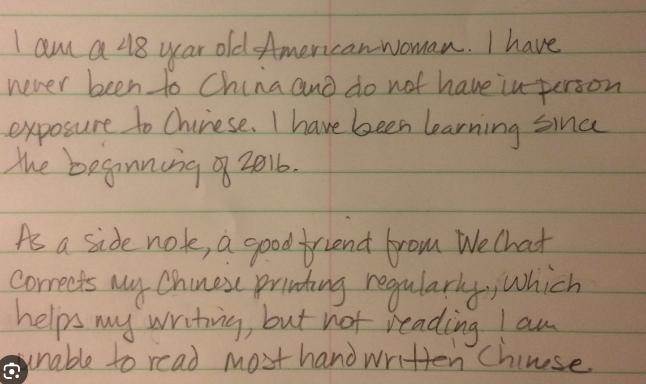 I am a 48 year old American woman. I have
never been to China and do not have in-person
exposure to Chinese. I have been learning since
the beginning of 2016.
As a side note, a good friend from WeChat
corrects my Chinese printing regularly, which
helps my writing, but not reading I am
unable to read most handwritten Chinese